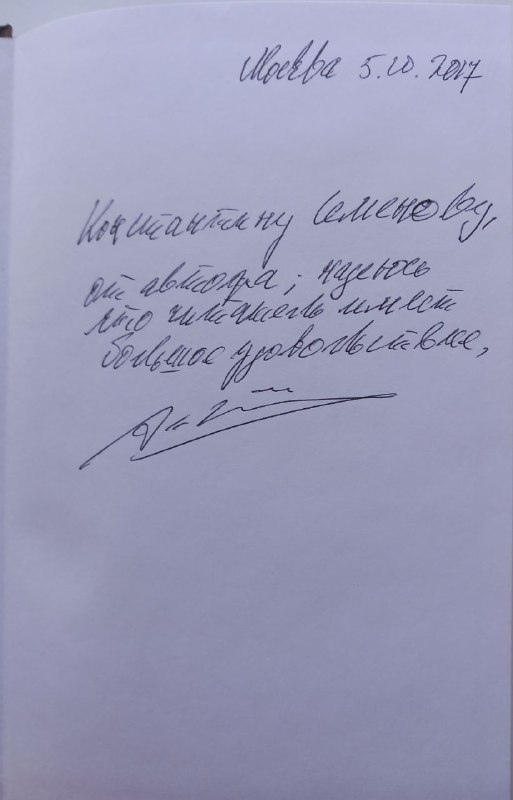 Москва 5.10.2017
Константину Семенову,
от автора; надеюсь
что читатель имеет
большое удовольствие,